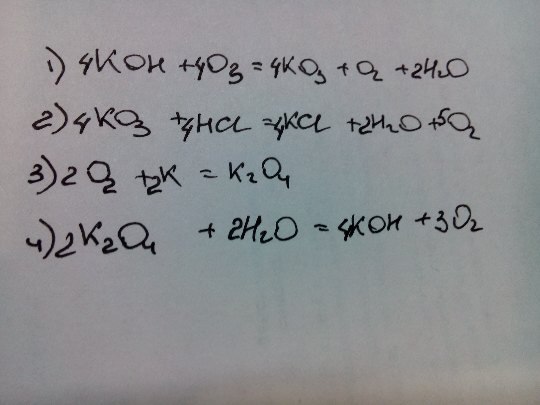 1) 4KOH + 4O₃ = 4KO₃ + O₂ + 2H₂O
2) 4KO₃ + 4HCl = 4KCl + 2H₂O + 5O₂
3) 2O₂ + 2K = K₂O₄
4) 2K₂O₄ + 2H₂O = 4KOH + 3O₂